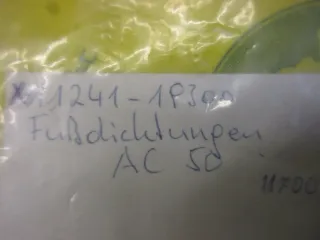 1241-1P300
Fußdichtungen
AC 50